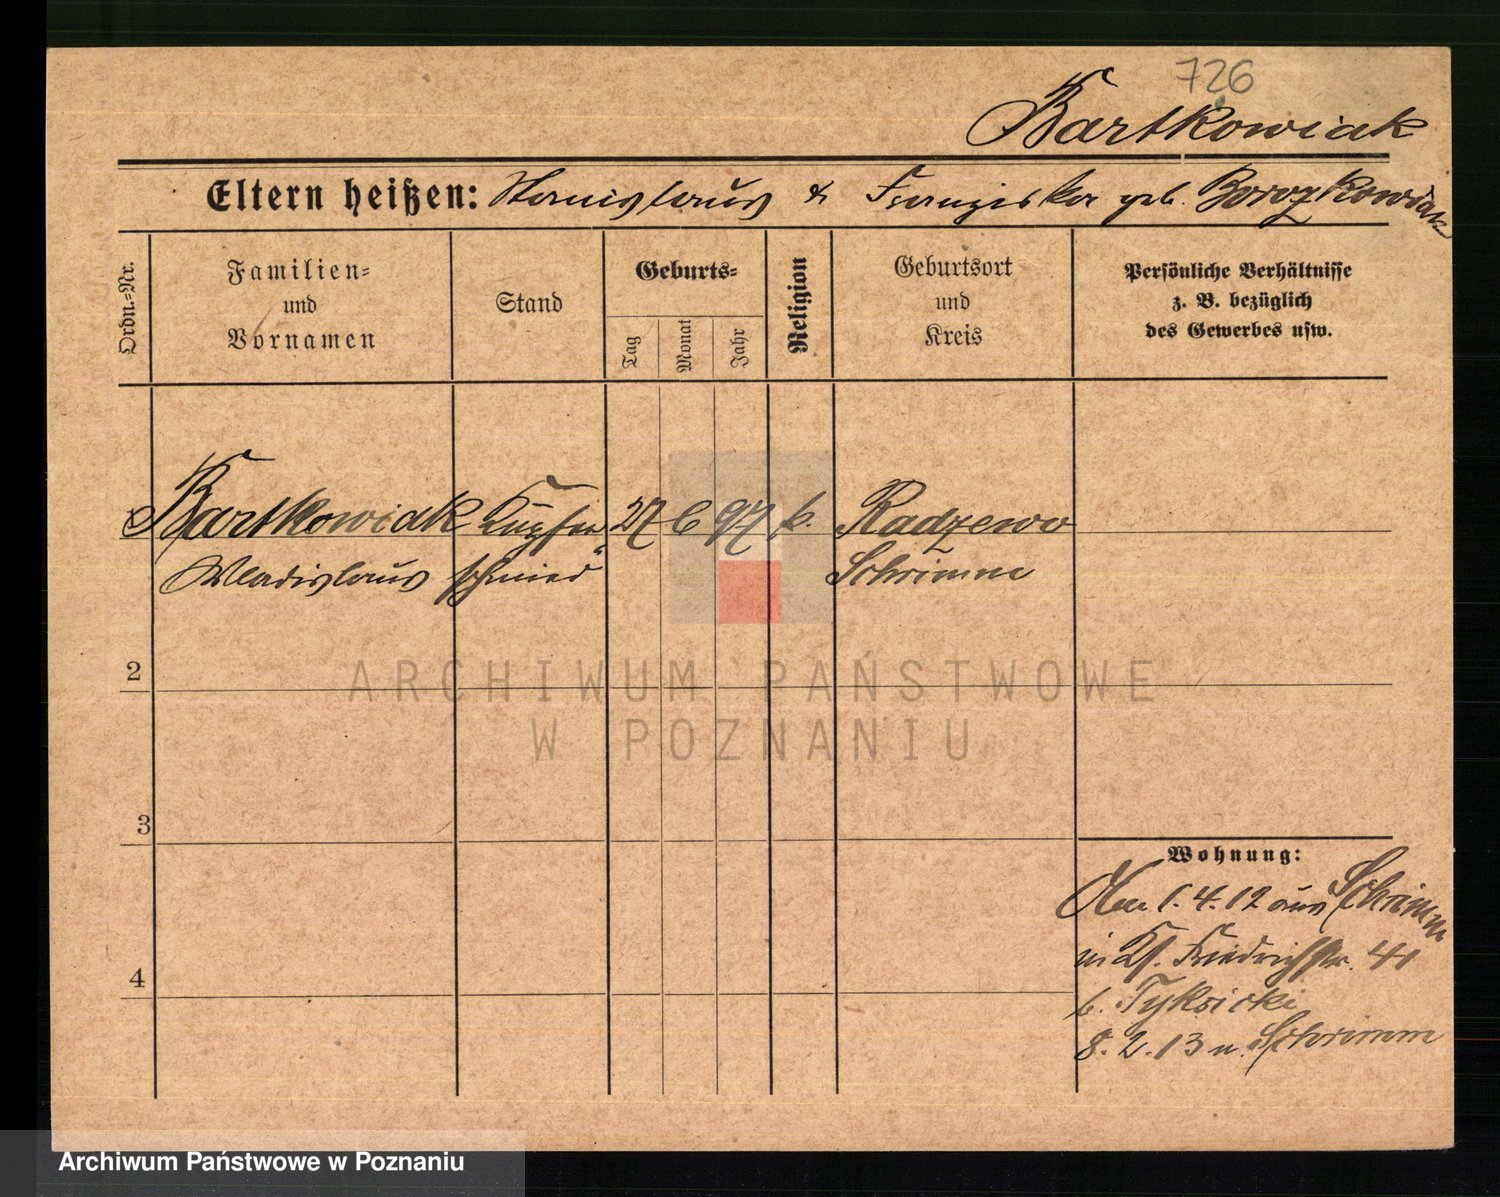 726
Bartkowiak
Eltern heißen: Stanislaus & Franziska geb. Borozkowiak
Ordn.=Nr.
Familien=
und
Vornamen
Stand
Geburts=
Tag
Monat
Jahr
Religion
Geburtsort
und
Kreis
Persönliche Verhältnisse
z. B. bezüglich
des Gewerbes usw.
Bartkowiak Kupfer 27 6 97 k. Radzewo
Wladislaus schmied Schrimm
2
3
4
Wohnung:
Am 1.4.12 aus Schrimm
in Friedrichstr. 41
b. Tyksicki
8.2.13 n. Schrimm
ARCHIWUM PAŃSTWOWE
W POZNANIU
Archiwum Państwowe w Poznaniu